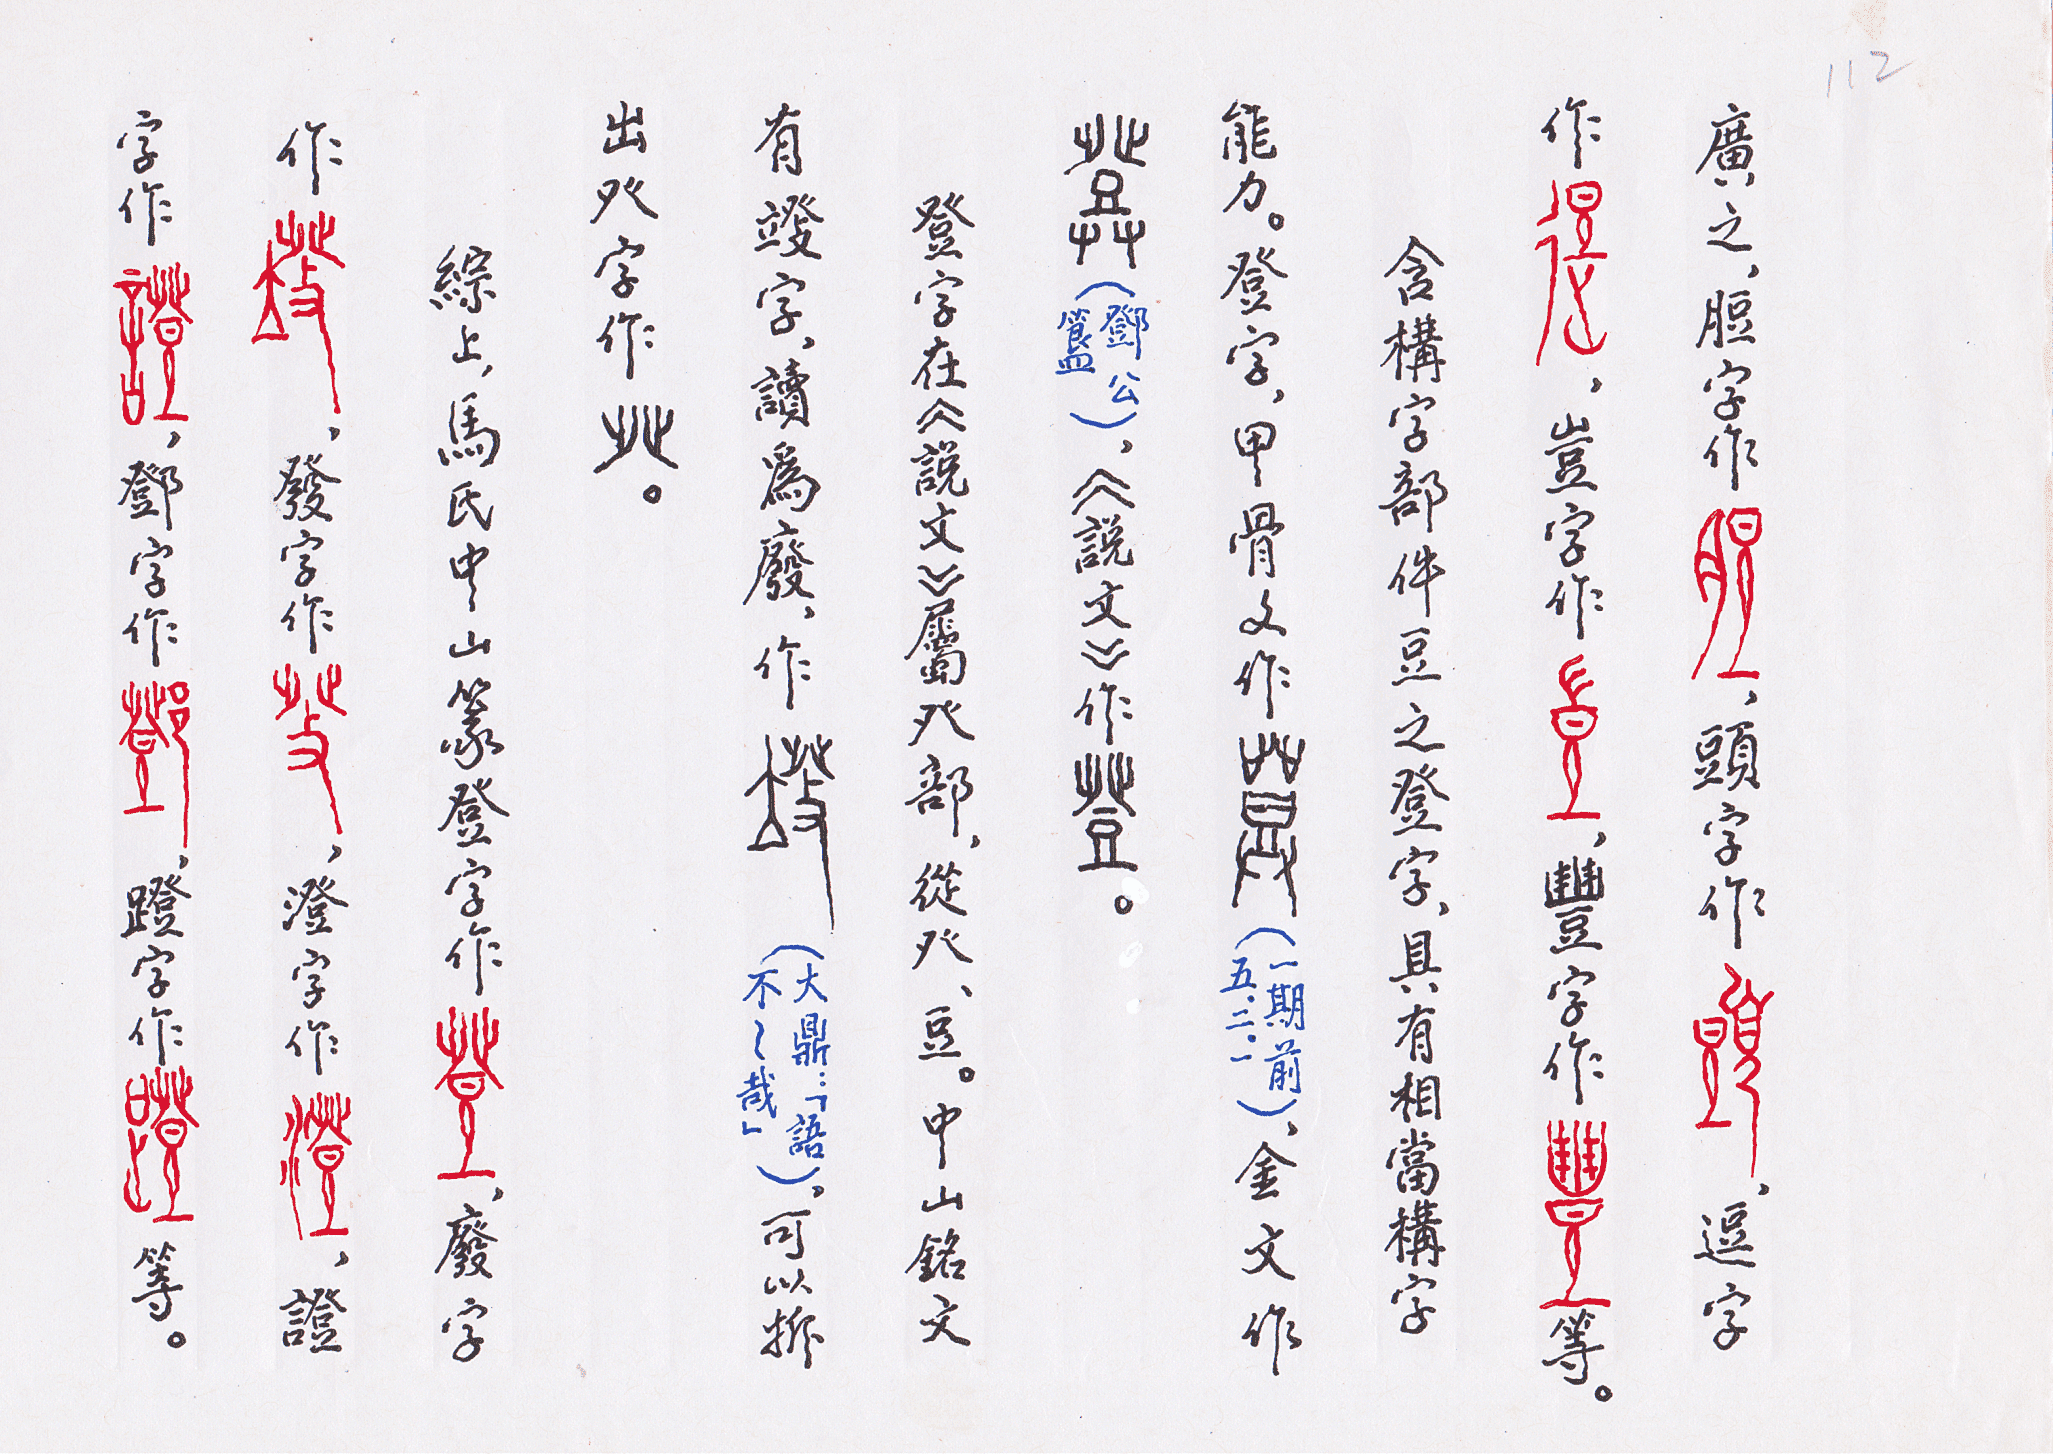 112
廣之，脰字作，頭字作，逗字
作，豈字作，豐字作等。
含構字部件豆之登字，具有相當構字
能力。登字，甲骨文作（一期前五.二.一），金文作
（鄧公簋），《說文》作。
登字在《說文》屬癶部，從癶、豆。中山銘文
有字，讀爲廢，作（大鼎：「語不〻哉」），可以推
出癶字作。
綜上，馬氏中山篆登字作，廢字
作，發字作，澄字作，證
字作，鄧字作，蹬字作等。